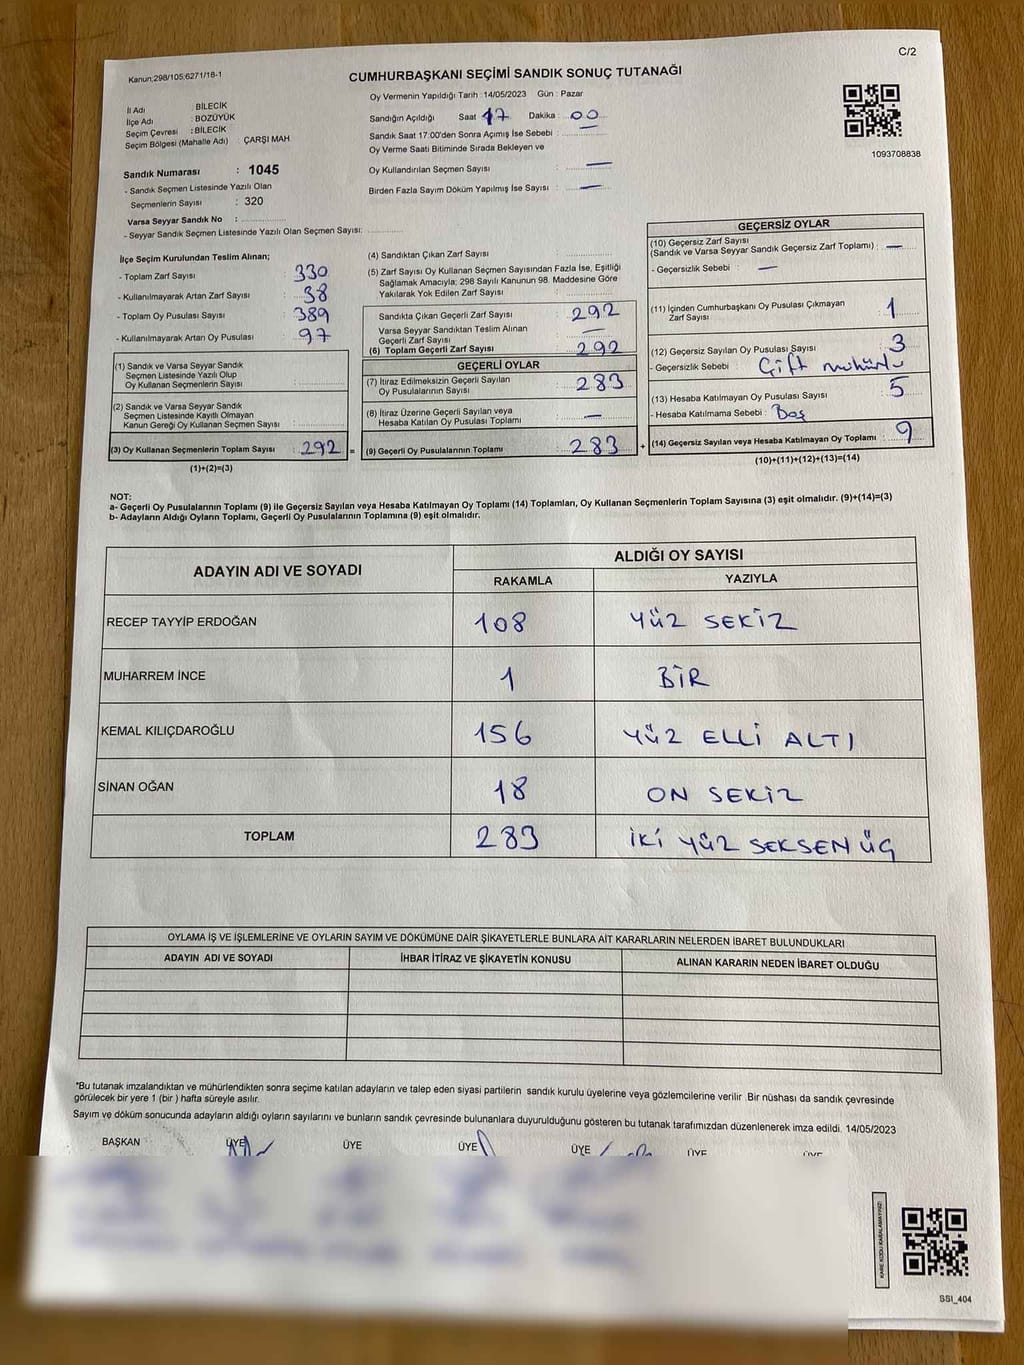 C/2
Kanun:298/105;6271/18-1
CUMHURBAŞKANI SEÇİMİ SANDIK SONUÇ TUTANAĞI
İl Adı : BİLECİK
İlçe Adı : BOZÜYÜK
Seçim Çevresi : BİLECİK
Seçim Bölgesi (Mahalle Adı) ÇARŞI MAH
Oy Vermenin Yapıldığı Tarih :14/05/2023 Gün : Pazar
Sandığın Açıldığı Saat 17 Dakika : 00
Sandık Saat 17:00'den Sonra Açımış İse Sebebi :
Oy Verme Saati Bitiminde Sırada Bekleyen ve
Oy Kullandırılan Seçmen Sayısı : —
Birden Fazla Sayım Döküm Yapılmış İse Sayısı : —
1093708838
Sandık Numarası : 1045
- Sandık Seçmen Listesinde Yazılı Olan
Seçmenlerin Sayısı : 320
Varsa Seyyar Sandık No :
- Seyyar Sandık Seçmen Listesinde Yazılı Olan Seçmen Sayısı:
İlçe Seçim Kurulundan Teslim Alınan;
- Toplam Zarf Sayısı : 330
- Kullanılmayarak Artan Zarf Sayısı : 38
- Toplam Oy Pusulası Sayısı : 389
- Kullanılmayarak Artan Oy Pusulası : 97
(1) Sandık ve Varsa Seyyar Sandık
Seçmen Listesinde Yazılı Olup
Oy Kullanan Seçmenlerin Sayısı :
(2) Sandık ve Varsa Seyyar Sandık
Seçmen Listesinde Kayıtlı Olmayan
Kanun Gereği Oy Kullanan Seçmen Sayısı :
(3) Oy Kullanan Seçmenlerin Toplam Sayısı : 292 =
(1)+(2)=(3)
(4) Sandıktan Çıkan Zarf Sayısı :
(5) Zarf Sayısı Oy Kullanan Seçmen Sayısından Fazla İse, Eşitliği
Sağlamak Amacıyla; 298 Sayılı Kanunun 98. Maddesine Göre
Yakılarak Yok Edilen Zarf Sayısı :
Sandıkta Çıkan Geçerli Zarf Sayısı : 292
Varsa Seyyar Sandıktan Teslim Alınan
Geçerli Zarf Sayısı : —
(6) Toplam Geçerli Zarf Sayısı : 292
GEÇERLİ OYLAR
(7) İtiraz Edilmeksizin Geçerli Sayılan
Oy Pusulalarının Sayısı : 283
(8) İtiraz Üzerine Geçerli Sayılan veya
Hesaba Katılan Oy Pusulası Toplamı : —
(9) Geçerli Oy Pusulalarının Toplamı : 283 +
GEÇERSİZ OYLAR
(10) Geçersiz Zarf Sayısı
(Sandık ve Varsa Seyyar Sandık Geçersiz Zarf Toplamı) : —
- Geçersizlik Sebebi : —
(11) İçinden Cumhurbaşkanı Oy Pusulası Çıkmayan
Zarf Sayısı : 1
(12) Geçersiz Sayılan Oy Pusulası Sayısı : 3
- Geçersizlik Sebebi : Çift mühürlü
(13) Hesaba Katılmayan Oy Pusulası Sayısı : 5
- Hesaba Katılmama Sebebi : Boş
(14) Geçersiz Sayılan veya Hesaba Katılmayan Oy Toplamı : 9
(10)+(11)+(12)+(13)=(14)
NOT:
a- Geçerli Oy Pusulalarının Toplamı (9) ile Geçersiz Sayılan veya Hesaba Katılmayan Oy Toplamı (14) Toplamları, Oy Kullanan Seçmenlerin Toplam Sayısına (3) eşit olmalıdır. (9)+(14)=(3)
b- Adayların Aldığı Oyların Toplamı, Geçerli Oy Pusulalarının Toplamına (9) eşit olmalıdır.
ADAYIN ADI VE SOYADI ALDIĞI OY SAYISI
RAKAMLA YAZIYLA
RECEP TAYYİP ERDOĞAN 108 YÜZ SEKİZ
MUHARREM İNCE 1 BİR
KEMAL KILIÇDAROĞLU 156 YÜZ ELLİ ALTI
SİNAN OĞAN 18 ON SEKİZ
TOPLAM 283 İKİ YÜZ SEKSEN ÜÇ
OYLAMA İŞ VE İŞLEMLERİNE VE OYLARIN SAYIM VE DÖKÜMÜNE DAİR ŞİKAYETLERLE BUNLARA AİT KARARLARIN NELERDEN İBARET BULUNDUKLARI
ADAYIN ADI VE SOYADI İHBAR İTİRAZ VE ŞİKAYETİN KONUSU ALINAN KARARIN NEDEN İBARET OLDUĞU
*Bu tutanak imzalandıktan ve mühürlendikten sonra seçime katılan adayların ve talep eden siyasi partilerin sandık kurulu üyelerine veya gözlemcilerine verilir .Bir nüshası da sandık çevresinde
görülecek bir yere 1 (bir ) hafta süreyle asılır.
Sayım ve döküm sonucunda adayların aldığı oyların sayılarını ve bunların sandık çevresinde bulunanlara duyurulduğunu gösteren bu tutanak tarafımızdan düzenlenerek imza edildi. 14/05/2023
BAŞKAN ÜYE ÜYE ÜYE ÜYE ÜYE ÜYE
KARE KODU KARALAMAYINIZ!
SSI_404